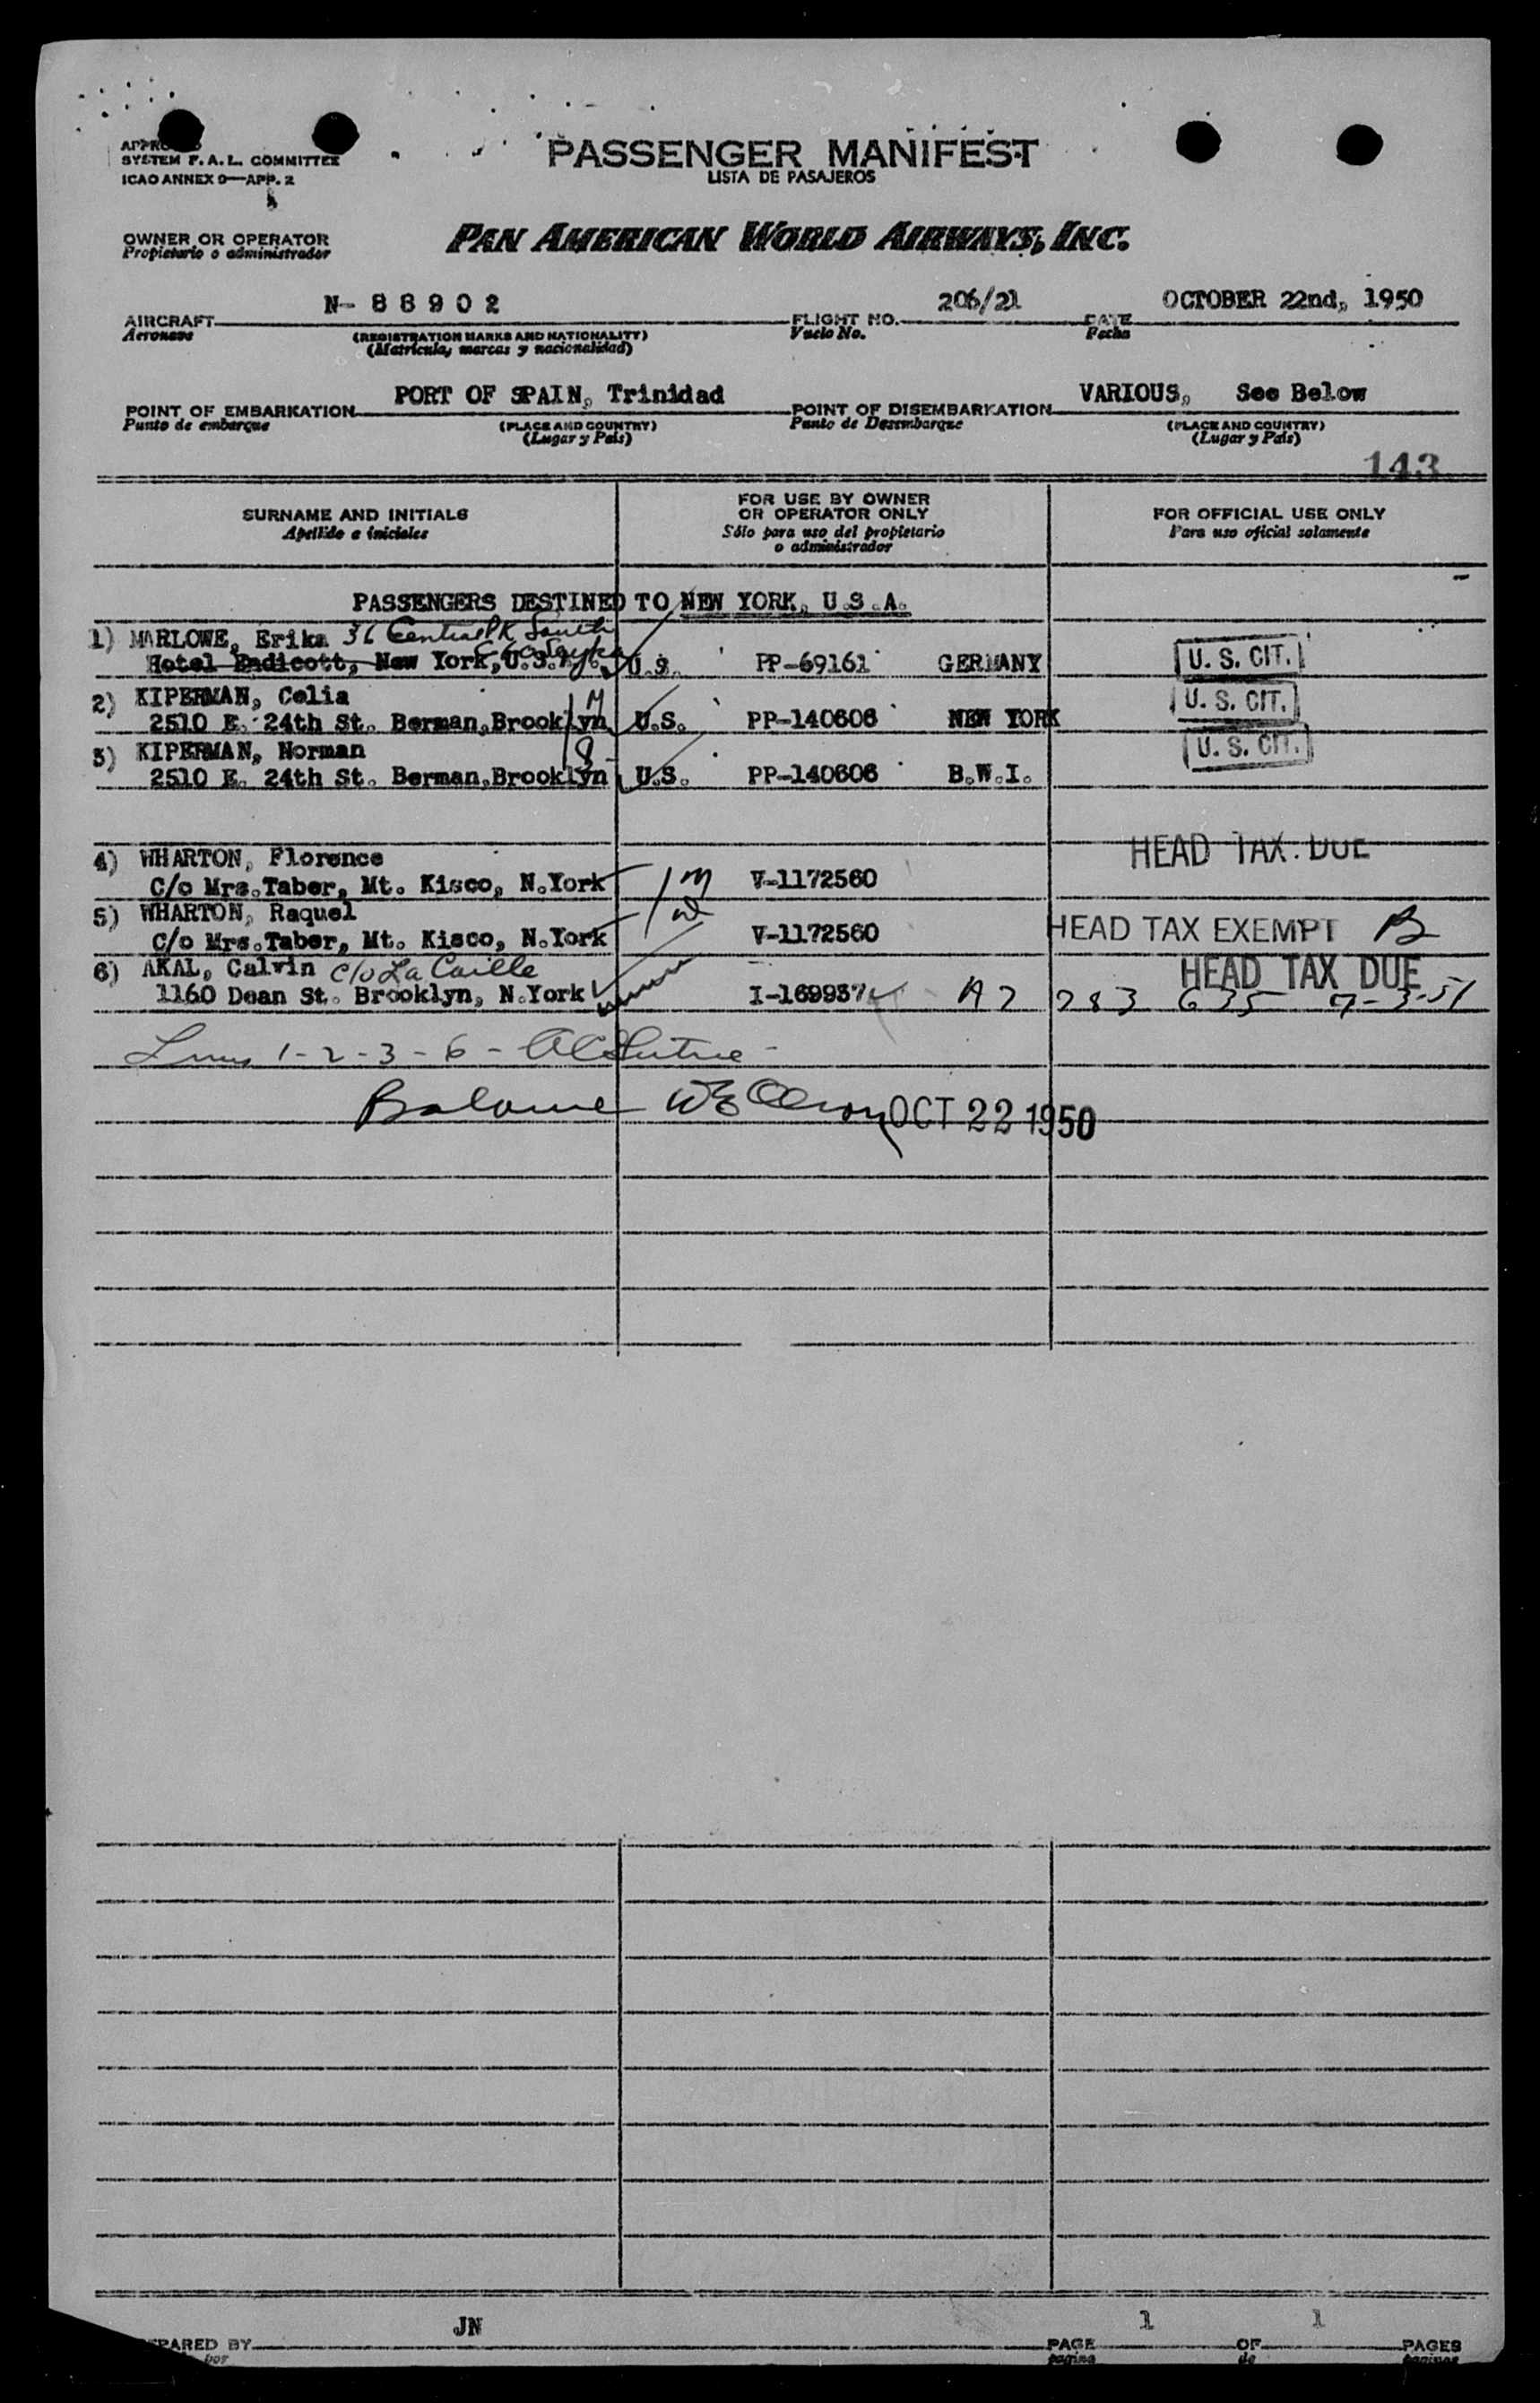 SYSTEM F.A.L. COMMITTEE
ICAO ANNEX 9—APP. 2
PASSENGER MANIFEST
LISTA DE PASAJEROS
OWNER OR OPERATOR
Propietario o administrador
PAN AMERICAN WORLD AIRWAYS, INC.
AIRCRAFT N- 8 8 9 0 2 FLIGHT NO. 206/21 DATE OCTOBER 22nd, 1950
Aeronave (REGISTRATION MARKS AND NATIONALITY) Vuelo No. Fecha
(Matrícula, marcas y nacionalidad)
POINT OF EMBARKATION PORT OF SPAIN, Trinidad POINT OF DISEMBARKATION VARIOUS, See Below
Punto de embarque (PLACE AND COUNTRY) Punto de Desembarque (PLACE AND COUNTRY)
(Lugar y País) (Lugar y País)
143
SURNAME AND INITIALS
Apellido e iniciales
FOR USE BY OWNER
OR OPERATOR ONLY
Sólo para uso del propietario
o administrador
FOR OFFICIAL USE ONLY
Para uso oficial solamente
PASSENGERS DESTINED TO NEW YORK, U.S.A.
1) MARLOWE, Erika 36 Central Pk South
Hotel Endicott, New York, U.S. U.S. PP-69161 GERMANY U. S. CIT.
2) KIPERMAN, Celia M
2510 E. 24th St. Berman, Brooklyn U.S. PP-140606 NEW YORK U. S. CIT.
3) KIPERMAN, Norman 8
2510 E. 24th St. Berman, Brooklyn U.S. PP-140606 B.W.I. U. S. CIT.
4) WHARTON, Florence HEAD TAX DUE
C/o Mrs. Taber, Mt. Kisco, N.York M V-1172560
5) WHARTON, Raquel
C/o Mrs. Taber, Mt. Kisco, N.York V-1172560 HEAD TAX EXEMPT B
6) AKAL, Calvin c/o La Caille HEAD TAX DUE
1160 Dean St. Brooklyn, N.York I-169937 A7 283 635
1-2-3-6-
OCT 22 1950
PREPARED BY JN PAGE 1 OF 1 PAGES
por página de páginas